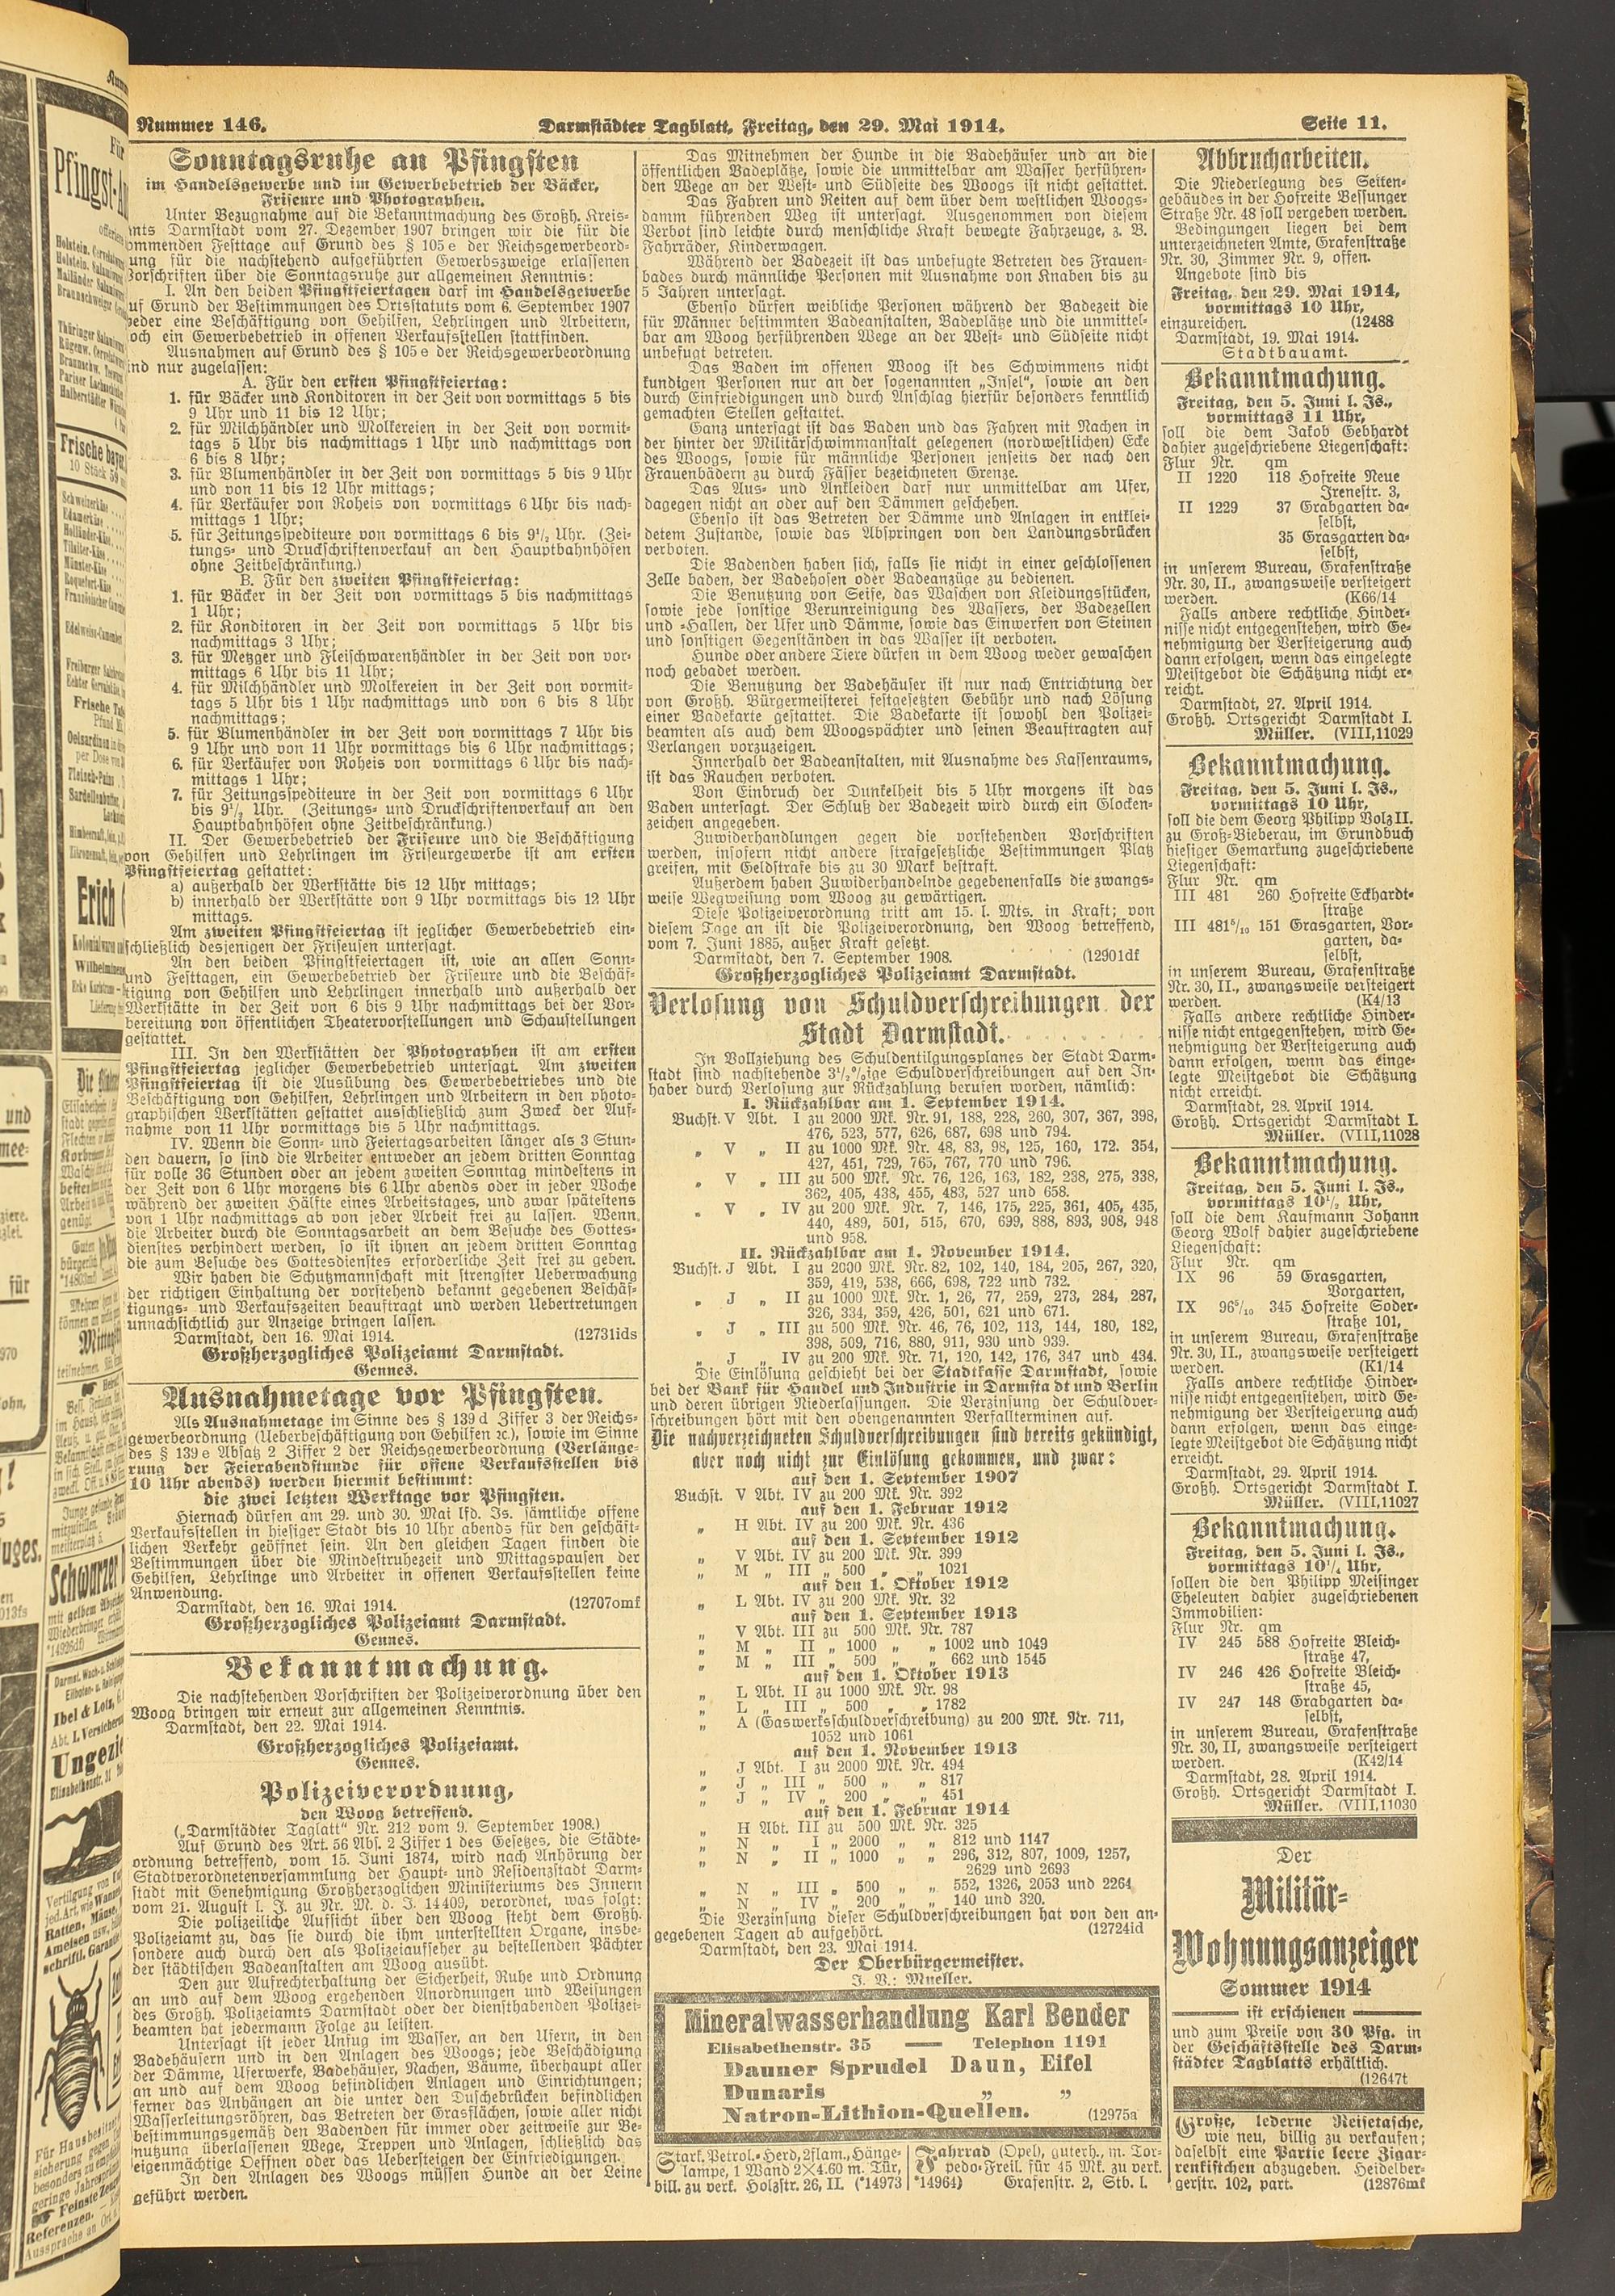 Nummer 146.
Darmstädter Tagblatt, Freitag, den 29. Mai 1914.
Seite 11.
Sonntagsruhe an Pfingsten
im Handelsgewerbe und im Gewerbebetrieb der Bäcker,
Friseure und Photographen.
Unter Bezugnahme auf die Bekanntmachung des Großh. Kreis-
amts Darmstadt vom 27. Dezember 1907 bringen wir die für die
kommenden Festtage auf Grund des § 105e der Reichsgewerbeord-
nung für die nachstehend aufgeführten Gewerbszweige erlassenen
Vorschriften über die Sonntagsruhe zur allgemeinen Kenntnis:
I. An den beiden Pfingstfeiertagen darf im Handelsgewerbe
auf Grund der Bestimmungen des Ortsstatuts vom 6. September 1907
weder eine Beschäftigung von Gehilfen, Lehrlingen und Arbeitern,
noch ein Gewerbebetrieb in offenen Verkaufsstellen stattfinden.
Ausnahmen auf Grund des § 105e der Reichsgewerbeordnung
sind nur zugelassen:
A. Für den ersten Pfingstfeiertag:
1. für Bäcker und Konditoren in der Zeit von vormittags 5 bis
9 Uhr und 11 bis 12 Uhr;
2. für Milchhändler und Molkereien in der Zeit von vormit-
tags 5 Uhr bis nachmittags 1 Uhr und nachmittags von
6 bis 8 Uhr;
3. für Blumenhändler in der Zeit von vormittags 5 bis 9 Uhr
und von 11 bis 12 Uhr mittags;
4. für Verkäufer von Roheis von vormittags 6 Uhr bis nach-
mittags 1 Uhr;
5. für Zeitungsspediteure von vormittags 6 bis 9½ Uhr. (Zei-
tungs- und Druckschriftenverkauf an den Hauptbahnhöfen
ohne Zeitbeschränkung.)
B. Für den zweiten Pfingstfeiertag:
1. für Bäcker in der Zeit von vormittags 5 bis nachmittags
1 Uhr;
2. für Konditoren in der Zeit von vormittags 5 Uhr bis
nachmittags 3 Uhr;
3. für Metzger und Fleischwarenhändler in der Zeit von vor-
mittags 6 Uhr bis 11 Uhr;
4. für Milchhändler und Molkereien in der Zeit von vormit-
tags 5 Uhr bis 1 Uhr nachmittags und von 6 bis 8 Uhr
nachmittags;
5. für Blumenhändler in der Zeit von vormittags 7 Uhr bis
9 Uhr und von 11 Uhr vormittags bis 6 Uhr nachmittags;
6. für Verkäufer von Roheis von vormittags 6 Uhr bis nach-
mittags 1 Uhr;
7. für Zeitungsspediteure in der Zeit von vormittags 6 Uhr
bis 9½ Uhr. (Zeitungs- und Druckschriftenverkauf an den
Hauptbahnhöfen ohne Zeitbeschränkung.)
II. Der Gewerbebetrieb der Friseure und die Beschäftigung
von Gehilfen und Lehrlingen im Friseurgewerbe ist am ersten
Pfingstfeiertag gestattet:
a) außerhalb der Werkstätte bis 12 Uhr mittags;
b) innerhalb der Werkstätte von 9 Uhr vormittags bis 12 Uhr
mittags.
Am zweiten Pfingstfeiertag ist jeglicher Gewerbebetrieb ein-
schließlich desjenigen der Friseusen untersagt.
An den beiden Pfingstfeiertagen ist, wie an allen Sonn-
und Festtagen, ein Gewerbebetrieb der Friseure und die Beschäf-
tigung von Gehilfen und Lehrlingen innerhalb und außerhalb der
Werkstätte in der Zeit von 6 bis 9 Uhr nachmittags bei der Vor-
bereitung von öffentlichen Theatervorstellungen und Schaustellungen
gestattet.
III. In den Werkstätten der Photographen ist am ersten
Pfingstfeiertag jeglicher Gewerbebetrieb untersagt. Am zweiten
Pfingstfeiertag ist die Ausübung des Gewerbebetriebes und die
Beschäftigung von Gehilfen, Lehrlingen und Arbeitern in den photo-
graphischen Werkstätten gestattet ausschließlich zum Zweck der Auf-
nahme von 11 Uhr vormittags bis 5 Uhr nachmittags.
IV. Wenn die Sonn- und Feiertagsarbeiten länger als 3 Stun-
den dauern, so sind die Arbeiter entweder an jedem dritten Sonntag
für volle 36 Stunden oder an jedem zweiten Sonntag mindestens in
der Zeit von 6 Uhr morgens bis 6 Uhr abends oder in jeder Woche
während der zweiten Hälfte eines Arbeitstages, und zwar spätestens
von 1 Uhr nachmittags ab von jeder Arbeit frei zu lassen. Wenn
die Arbeiter durch die Sonntagsarbeit an dem Besuche des Gottes-
dienstes verhindert werden, so ist ihnen an jedem dritten Sonntag
die zum Besuche des Gottesdienstes erforderliche Zeit frei zu geben.
Wir haben die Schutzmannschaft mit strengster Ueberwachung
der richtigen Einhaltung der vorstehend bekannt gegebenen Beschäf-
tigungs- und Verkaufszeiten beauftragt und werden Uebertretungen
unnachsichtlich zur Anzeige bringen lassen.
Darmstadt, den 16. Mai 1914. (12731ids
Großherzogliches Polizeiamt Darmstadt.
Gennes.
Ausnahmetage vor Pfingsten.
Als Ausnahmetage im Sinne des § 139d Ziffer 3 der Reichs-
gewerbeordnung (Ueberbeschäftigung von Gehilfen ꝛc.), sowie im Sinne
des § 139e Absatz 2 Ziffer 2 der Reichsgewerbeordnung (Verlänge-
rung der Feierabendstunde für offene Verkaufsstellen bis
10 Uhr abends) werden hiermit bestimmt:
die zwei letzten Werktage vor Pfingsten.
Hiernach dürfen am 29. und 30. Mai lfd. Js. sämtliche offene
Verkaufsstellen in hiesiger Stadt bis 10 Uhr abends für den geschäft-
lichen Verkehr geöffnet sein. An den gleichen Tagen finden die
Bestimmungen über die Mindestruhezeit und Mittagspausen der
Gehilfen, Lehrlinge und Arbeiter in offenen Verkaufsstellen keine
Anwendung.
Darmstadt, den 16. Mai 1914. (12707omf
Großherzogliches Polizeiamt Darmstadt.
Gennes.
Bekanntmachung.
Die nachstehenden Vorschriften der Polizeiverordnung über den
Woog bringen wir erneut zur allgemeinen Kenntnis.
Darmstadt, den 22. Mai 1914.
Großherzogliches Polizeiamt.
Gennes.
Polizeiverordnung,
den Woog betreffend.
(„Darmstädter Taglatt" Nr. 212 vom 9. September 1908.)
Auf Grund des Art. 56 Abs. 2 Ziffer 1 des Gesetzes, die Städte-
ordnung betreffend, vom 15. Juni 1874, wird nach Anhörung der
Stadtverordnetenversammlung der Haupt- und Residenzstadt Darm-
stadt mit Genehmigung Großherzoglichen Ministeriums des Innern
vom 21. August l. J. zu Nr. M. d. J. 14409, verordnet, was folgt:
Die polizeiliche Aufsicht über den Woog steht dem Großh.
Polizeiamt zu, das sie durch die ihm unterstellten Organe, insbe-
sondere auch durch den als Polizeiaufseher zu bestellenden Pächter
der städtischen Badeanstalten am Woog ausübt.
Den zur Aufrechterhaltung der Sicherheit, Ruhe und Ordnung
an und auf dem Woog ergehenden Anordnungen und Weisungen
des Großh. Polizeiamts Darmstadt oder der diensthabenden Polizei-
beamten hat jedermann Folge zu leisten.
Untersagt ist jeder Unfug im Wasser, an den Ufern, in den
Badehäusern und in den Anlagen des Woogs; jede Beschädigung
der Dämme, Uferwerke, Badehäuser, Nachen, Bäume, überhaupt aller
an und auf dem Woog befindlichen Anlagen und Einrichtungen;
ferner das Anhängen an die unter den Duschebrücken befindlichen
Wasserleitungsröhren, das Betreten der Grasflächen, sowie aller nicht
bestimmungsgemäß den Badenden für immer oder zeitweise zur Be-
nutzung überlassenen Wege, Treppen und Anlagen, schließlich das
eigenmächtige Oeffnen oder das Uebersteigen der Einfriedigungen.
In den Anlagen des Woogs müssen Hunde an der Leine
geführt werden.
Das Mitnehmen der Hunde in die Badehäuser und an die
öffentlichen Badeplätze, sowie die unmittelbar am Wasser herführen-
den Wege an der West- und Südseite des Woogs ist nicht gestattet.
Das Fahren und Reiten auf dem über dem westlichen Woogs-
damm führenden Weg ist untersagt. Ausgenommen von diesem
Verbot sind leichte durch menschliche Kraft bewegte Fahrzeuge, z. B.
Fahrräder, Kinderwagen.
Während der Badezeit ist das unbefugte Betreten des Frauen-
bades durch männliche Personen mit Ausnahme von Knaben bis zu
5 Jahren untersagt.
Ebenso dürfen weibliche Personen während der Badezeit die
für Männer bestimmten Badeanstalten, Badeplätze und die unmittel-
bar am Woog herführenden Wege an der West- und Südseite nicht
unbefugt betreten.
Das Baden im offenen Woog ist des Schwimmens nicht
kundigen Personen nur an der sogenannten „Insel", sowie an den
durch Einfriedigungen und durch Anschlag hierfür besonders kenntlich
gemachten Stellen gestattet.
Ganz untersagt ist das Baden und das Fahren mit Nachen in
der hinter der Militärschwimmanstalt gelegenen (nordwestlichen) Ecke
des Woogs, sowie für männliche Personen jenseits der nach den
Frauenbädern zu durch Fässer bezeichneten Grenze.
Das Aus- und Ankleiden darf nur unmittelbar am Ufer,
dagegen nicht an oder auf den Dämmen geschehen.
Ebenso ist das Betreten der Dämme und Anlagen in entklei-
detem Zustande, sowie das Abspringen von den Landungsbrücken
verboten.
Die Badenden haben sich, falls sie nicht in einer geschlossenen
Zelle baden, der Badehosen oder Badeanzüge zu bedienen.
Die Benutzung von Seife, das Waschen von Kleidungsstücken,
sowie jede sonstige Verunreinigung des Wassers, der Badezellen
und -Hallen, der Ufer und Dämme, sowie das Einwerfen von Steinen
und sonstigen Gegenständen in das Wasser ist verboten.
Hunde oder andere Tiere dürfen in dem Woog weder gewaschen
noch gebadet werden.
Die Benutzung der Badehäuser ist nur nach Entrichtung der
von Großh. Bürgermeisterei festgesetzten Gebühr und nach Lösung
einer Badekarte gestattet. Die Badekarte ist sowohl den Polizei-
beamten als auch dem Woogspächter und seinen Beauftragten auf
Verlangen vorzuzeigen.
Innerhalb der Badeanstalten, mit Ausnahme des Kassenraums,
ist das Rauchen verboten.
Von Einbruch der Dunkelheit bis 5 Uhr morgens ist das
Baden untersagt. Der Schluß der Badezeit wird durch ein Glocken-
zeichen angegeben.
Zuwiderhandlungen gegen die vorstehenden Vorschriften
werden, insofern nicht andere strafgesetzliche Bestimmungen Platz
greifen, mit Geldstrafe bis zu 30 Mark bestraft.
Außerdem haben Zuwiderhandelnde gegebenenfalls die zwangs-
weise Wegweisung vom Woog zu gewärtigen.
Diese Polizeiverordnung tritt am 15. l. Mts. in Kraft; von
diesem Tage an ist die Polizeiverordnung, den Woog betreffend,
vom 7. Juni 1885, außer Kraft gesetzt.
Darmstadt, den 7. September 1908. (12901df
Großherzogliches Polizeiamt Darmstadt.
Verlosung von Schuldverschreibungen der
Stadt Darmstadt.
In Vollziehung des Schuldentilgungsplanes der Stadt Darm-
stadt sind nachstehende 3½%ige Schuldverschreibungen auf den In-
haber durch Verlosung zur Rückzahlung berufen worden, nämlich:
I. Rückzahlbar am 1. September 1914.
Buchst. V Abt. I zu 2000 Mk. Nr. 91, 188, 228, 260, 307, 367, 398,
476, 523, 577, 626, 687, 698 und 794.
„ V „ II zu 1000 Mk. Nr. 48, 83, 98, 125, 160, 172. 354,
427, 451, 729, 765, 767, 770 und 796.
„ V „ III zu 500 Mk. Nr. 76, 126, 163, 182, 238, 275, 338,
362, 405, 438, 455, 483, 527 und 658.
„ V „ IV zu 200 Mk. Nr. 7, 146, 175, 225, 361, 405, 435,
440, 489, 501, 515, 670, 699, 888, 893, 908, 948
und 958.
II. Rückzahlbar am 1. November 1914.
Buchst. J Abt. I zu 2000 Mk. Nr. 82, 102, 140, 184, 205, 267, 320,
359, 419, 538, 666, 698, 722 und 732.
„ J „ II zu 1000 Mk. Nr. 1, 26, 77, 259, 273, 284, 287,
326, 334, 359, 426, 501, 621 und 671.
„ J „ III zu 500 Mk. Nr. 46, 76, 102, 113, 144, 180, 182,
398, 509, 716, 880, 911, 930 und 939.
„ J „ IV zu 200 Mk. Nr. 71, 120, 142, 176, 347 und 434.
Die Einlösung geschieht bei der Stadtkasse Darmstadt, sowie
bei der Bank für Handel und Industrie in Darmstadt und Berlin
und deren übrigen Niederlassungen. Die Verzinsung der Schuldver-
schreibungen hört mit den obengenannten Verfallterminen auf.
Die nachverzeichneten Schuldverschreibungen sind bereits gekündigt,
aber noch nicht zur Einlösung gekommen, und zwar:
auf den 1. September 1907
Buchst. V Abt. IV zu 200 Mk. Nr. 392
auf den 1. Februar 1912
„ H Abt. IV zu 200 Mk. Nr. 436
auf den 1. September 1912
„ V Abt. IV zu 200 Mk. Nr. 399
„ M „ III „ 500 „ „ 1021
auf den 1. Oktober 1912
„ L Abt. IV zu 200 Mk. Nr. 32
auf den 1. September 1913
„ V Abt. III zu 500 Mk. Nr. 787
„ M „ II „ 1000 „ „ 1002 und 1049
„ M „ III „ 500 „ „ 662 und 1545
auf den 1. Oktober 1913
„ L Abt. II zu 1000 Mk. Nr. 98
„ L „ III „ 500 „ „ 1782
„ A (Gaswerksschuldverschreibung) zu 200 Mk. Nr. 711,
1052 und 1061
auf den 1. November 1913
„ J Abt. I zu 2000 Mk. Nr. 494
„ J „ III „ 500 „ „ 817
„ J „ IV „ 200 „ „ 451
auf den 1. Februar 1914
„ H Abt. III zu 500 Mk. Nr. 325
„ N „ I „ 2000 „ „ 812 und 1147
„ N „ II „ 1000 „ „ 296, 312, 807, 1009, 1257,
2629 und 2693
„ N „ III „ 500 „ „ 552, 1326, 2053 und 2264
„ N „ IV „ 200 „ „ 140 und 320.
Die Verzinsung dieser Schuldverschreibungen hat von den an-
gegebenen Tagen ab aufgehört. (12724id
Darmstadt, den 23. Mai 1914.
Der Oberbürgermeister.
J. V.: Mueller.
Mineralwasserhandlung Karl Bender
Elisabethenstr. 35 — Telephon 1191
Dauner Sprudel Daun, Eifel
Dunaris „ „
Natron-Lithion-Quellen. (12975a
Stark. Petrol.-Herd, 2flam., Hänge-
lampe, 1 Wand 2×4.60 m. Tür,
bill. zu verk. Holzstr. 26, II. (*14973
Fahrrad (Opel), guterh., m. Tor-
pedo-Freil. für 45 Mk. zu verk.
*14964) Grafenstr. 2, Stb. l.
Abbrucharbeiten.
Die Niederlegung des Seiten-
gebäudes in der Hofreite Bessunger
Straße Nr. 48 soll vergeben werden.
Bedingungen liegen bei dem
unterzeichneten Amte, Grafenstraße
Nr. 30, Zimmer Nr. 9, offen.
Angebote sind bis
Freitag, den 29. Mai 1914,
vormittags 10 Uhr,
einzureichen. (12488
Darmstadt, 19. Mai 1914.
Stadtbauamt.
Bekanntmachung.
Freitag, den 5. Juni l. Js.,
vormittags 11 Uhr,
soll die dem Jakob Gebhardt
dahier zugeschriebene Liegenschaft:
Flur Nr. qm
II 1220 118 Hofreite Neue
Irenestr. 3,
II 1229 37 Grabgarten da-
selbst,
35 Grasgarten da-
selbst,
in unserem Bureau, Grafenstraße
Nr. 30, II., zwangsweise versteigert
werden. (K66/14
Falls andere rechtliche Hinder-
nisse nicht entgegenstehen, wird Ge-
nehmigung der Versteigerung auch
dann erfolgen, wenn das eingelegte
Meistgebot die Schätzung nicht er-
reicht.
Darmstadt, 27. April 1914.
Großh. Ortsgericht Darmstadt I.
Müller. (VIII,11029
Bekanntmachung.
Freitag, den 5. Juni l. Js.,
vormittags 10 Uhr,
soll die dem Georg Philipp Volz II.
zu Groß-Bieberau, im Grundbuch
hiesiger Gemarkung zugeschriebene
Liegenschaft:
Flur Nr. qm
III 481 260 Hofreite Eckhardt-
straße
III 481⁵/₁₀ 151 Grasgarten, Vor-
garten, da-
selbst,
in unserem Bureau, Grafenstraße
Nr. 30, II., zwangsweise versteigert
werden. (K4/13
Falls andere rechtliche Hinder-
nisse nicht entgegenstehen, wird Ge-
nehmigung der Versteigerung auch
dann erfolgen, wenn das einge-
legte Meistgebot die Schätzung
nicht erreicht.
Darmstadt, 28. April 1914.
Großh. Ortsgericht Darmstadt I.
Müller. (VIII,11028
Bekanntmachung.
Freitag, den 5. Juni l. Js.,
vormittags 10½ Uhr,
soll die dem Kaufmann Johann
Georg Wolf dahier zugeschriebene
Liegenschaft:
Flur Nr. qm
IX 96 59 Grasgarten,
Vorgarten,
IX 96⁵/₁₀ 345 Hofreite Soder-
straße 101,
in unserem Bureau, Grafenstraße
Nr. 30, II., zwangsweise versteigert
werden. (K1/14
Falls andere rechtliche Hinder-
nisse nicht entgegenstehen, wird Ge-
nehmigung der Versteigerung auch
dann erfolgen, wenn das einge-
legte Meistgebot die Schätzung nicht
erreicht.
Darmstadt, 29. April 1914.
Großh. Ortsgericht Darmstadt I.
Müller. (VIII,11027
Bekanntmachung.
Freitag, den 5. Juni l. Js.,
vormittags 10¼ Uhr,
sollen die den Philipp Meisinger
Eheleuten dahier zugeschriebenen
Immobilien:
Flur Nr. qm
IV 245 588 Hofreite Bleich-
straße 47,
IV 246 426 Hofreite Bleich-
straße 45,
IV 247 148 Grabgarten da-
selbst,
in unserem Bureau, Grafenstraße
Nr. 30, II, zwangsweise versteigert
werden. (K42/14
Darmstadt, 28. April 1914.
Großh. Ortsgericht Darmstadt I.
Müller. (VIII,11030
Der
Militär-
Wohnungsanzeiger
Sommer 1914
ist erschienen
und zum Preise von 30 Pfg. in
der Geschäftsstelle des Darm-
städter Tagblatts erhältlich.
(12647t
Große, lederne Reisetasche,
wie neu, billig zu verkaufen;
daselbst eine Partie leere Zigar-
renkistchen abzugeben. Heidelber-
gerstr. 102, part. (12876mf